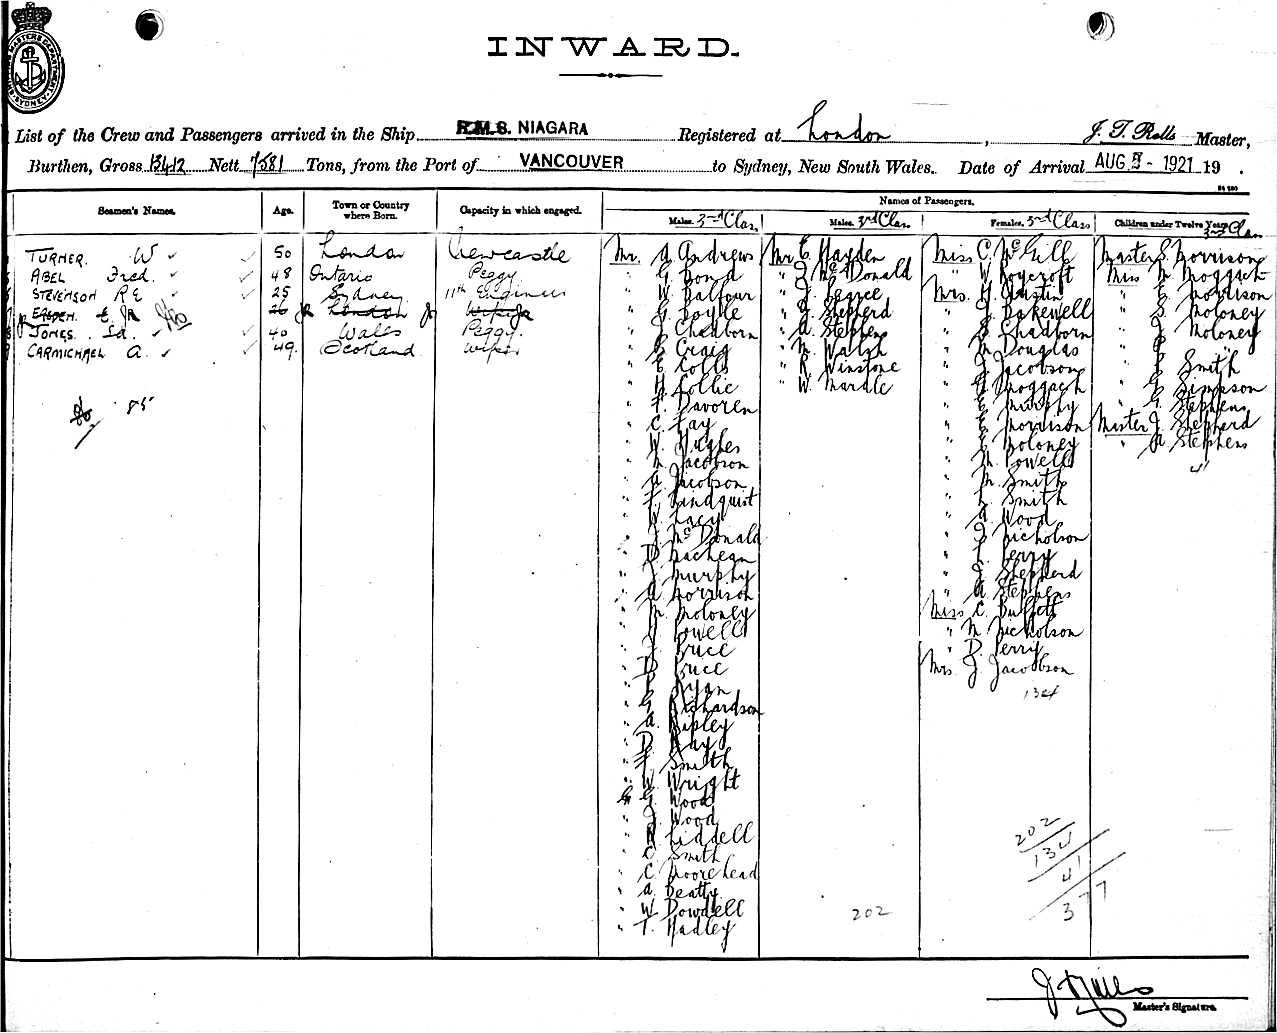 INWARD.
List of the Crew and Passengers arrived in the Ship R.M.S. NIAGARA Registered at London, J. T. Rolls Master,
Burthen, Gross 13412 Nett 7581 Tons, from the Port of VANCOUVER to Sydney, New South Wales. Date of Arrival AUG - 1921 19 .
Names of Passengers.
Seamen's Names. Age. Town or Country where Born. Capacity in which engaged. Males. 3rd Class Males. 3rd Clas. Females. 3rd Class Children under Twelve Years 3rd Clas.
TURNER. W 50 London Newcastle
ABEL Fred. 48 Ontario Peggy
STEVENSON R E 25 Sydney 11th Engineer
E. 26 London Wiper
JONES. Ed. 40 Wales Peggy.
CARMICHAEL A. 49. Scotland Wiper
85
Mr. A Andrews
" G Bond
" W Balfour
" G Boyle
" J Chadborn
" G Craig
" E Colls
" H Collie
" F. Davoren
" C. Fay
" W. Hughes
" M Jacobson
" A. Jacobson
" F. Lindquist
" W Lacy
" J. McDonald
" D MacLean
" J Murphy
" A Morrison
" M. Moloney
" J Powell
" J. Bruce
" D Bruce
" P Ryan
" G Richardson
" A. Ripley
" D Ray
" F Smith
" W. Wright
" G. Wood
" J. Wood
" R Liddell
" C Smith
" C Moorehead
" A. Beatty
" W Dowdell
" T. Hadley
Mr E Hayden
" J. McDonald
" J. Pearce
" J Shepherd
" A. Stephens
" M. Walsh
" R. Winstone
" W. Mardle
202
Miss C. McGill
" W Roycroft
Mrs. H Austin
" J. Bakewell
" S. Chadborn
" M Douglas
" J. Jacobson
" A Moggach
" E. Murphy
" E Morrison
" E Moloney
" M Powell
" M. Smith
" L. Smith
" A Wood
" J Nicholson
" L. Perry
" J. Shepherd
" A. Stephens
Miss C. Buffett
" M. Nicholson
" D. Perry
Mrs. J. Jacobson
134
Master S. Morrison
Miss M. Moggach
" E. Morrison
" S. Moloney
" J. Moloney
" P "
" P Smith
" G Simpson
" G Stephens
Master J. Shepherd
" A Stephens
41
202
134
41
377
Master's Signature.